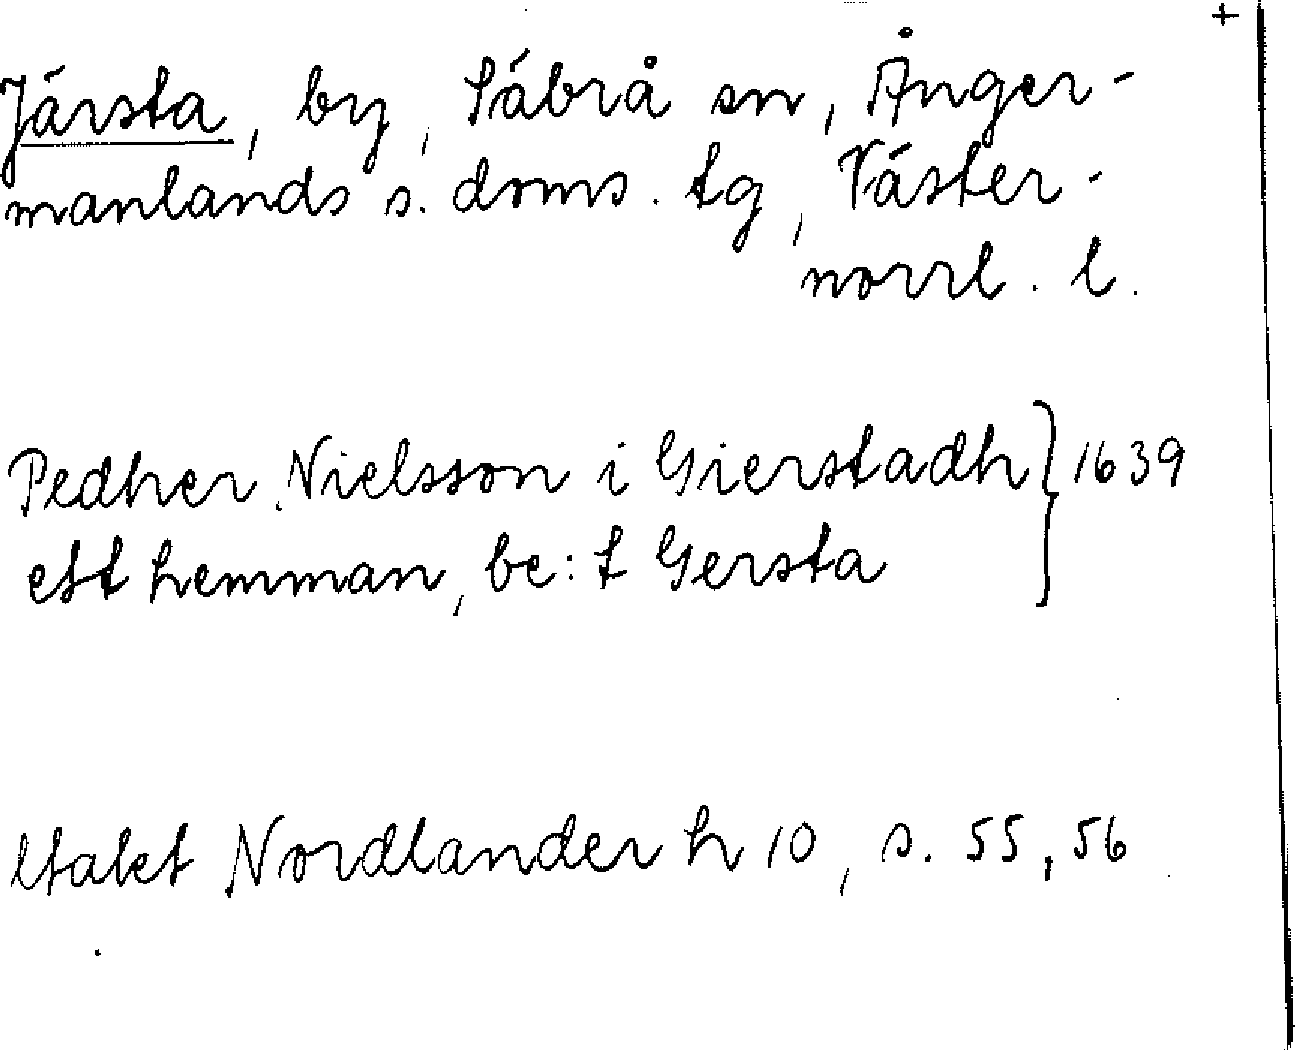 +
Järsta, by, Säbrå sn, Ånger-
manlands s. doms. tg, Väster-
norrl. l.
Pedher Nielsson i Gierstadh } 1639
ett hemman, be:t Gersta
Nordlander h 10, s. 55, 56